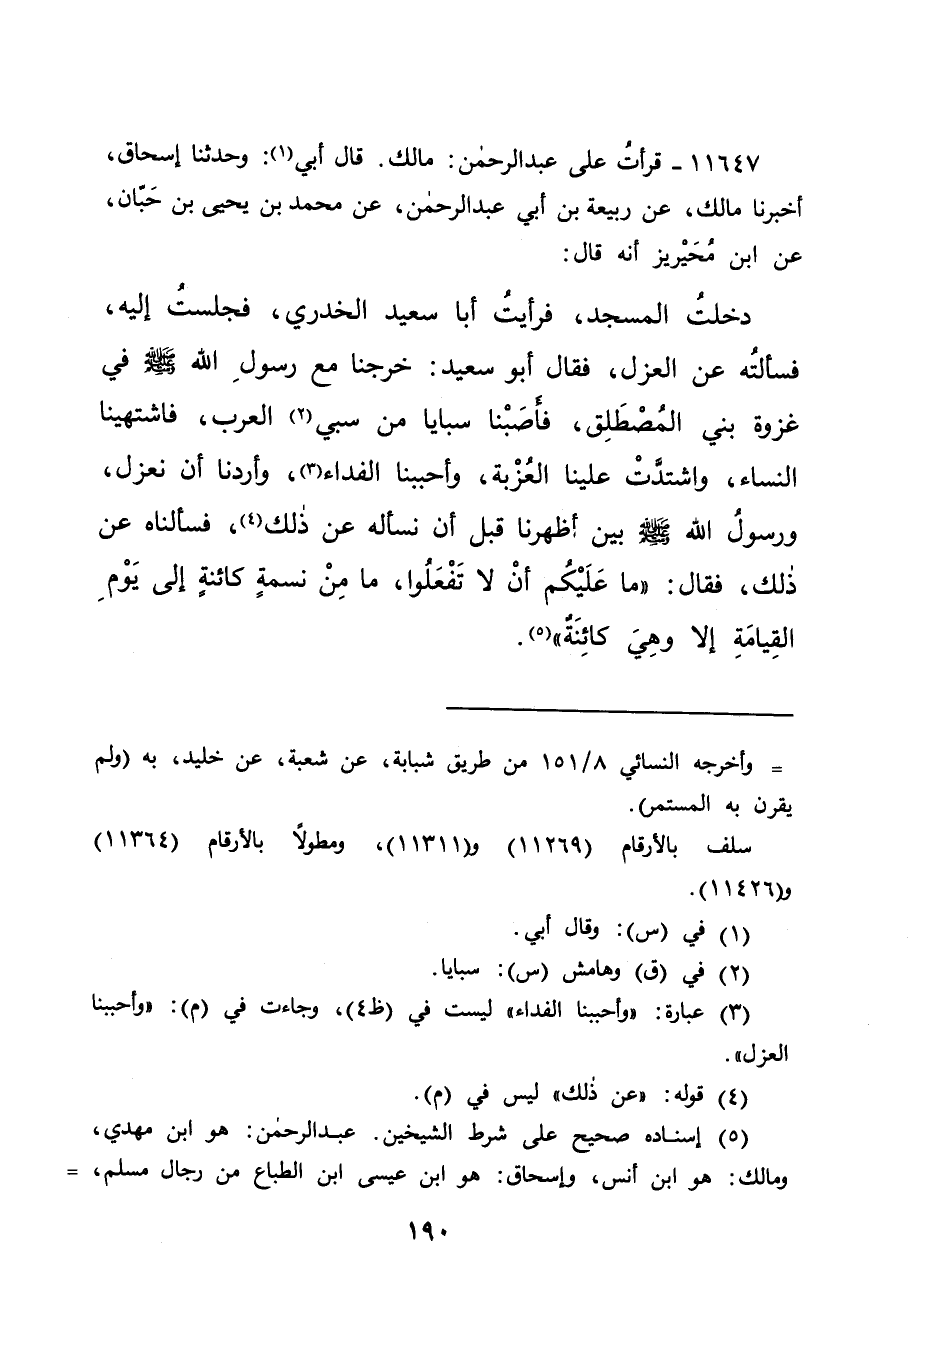 ١١٦٤٧ - قرأتُ على عبدالرحمٰن: مالك. قال أبي(١): وحدثنا إسحاق،
أخبرنا مالك، عن ربيعة بن أبي عبدالرحمٰن، عن محمد بن يحيى بن حَبّان،
عن ابن مُحَيْريز أنه قال:
دخلتُ المسجد، فرأيتُ أبا سعيد الخدري، فجلستُ إليه،
فسألتُه عن العزل، فقال أبو سعيد: خرجنا مع رسولِ الله ﷺ في
غزوة بني المُصْطَلِق، فأَصَبْنا سبايا من سبي(٢) العرب، فاشتهينا
النساء، واشتدَّتْ علينا العُزْبة، وأحببنا الفداء(٣)، وأردنا أن نعزل،
ورسولُ الله ﷺ بين أظهرنا قبل أن نسأله عن ذٰلك(٤)، فسألناه عن
ذٰلك، فقال: «ما عَلَيْكُم أنْ لا تَفْعَلُوا، ما مِنْ نسمةٍ كائنةٍ إلى يَوْمِ
القِيامَةِ إلا وهِيَ كائِنَةٌ»(٥).
= وأخرجه النسائي ١٥١/٨ من طريق شبابة، عن شعبة، عن خليد، به (ولم
يقرن به المستمر).
سلف بالأرقام (١١٢٦٩) و(١١٣١١)، ومطولًا بالأرقام (١١٣٦٤)
و(١١٤٢٦).
(١) في (س): وقال أبي.
(٢) في (ق) وهامش (س): سبايا.
(٣) عبارة: «وأحببنا الفداء» ليست في (ظ٤)، وجاءت في (م): «وأحببنا
العزل».
(٤) قوله: «عن ذٰلك» ليس في (م).
(٥) إسناده صحيح على شرط الشيخين. عبدالرحمٰن: هو ابن مهدي،
ومالك: هو ابن أنس، وإسحاق: هو ابن عيسى ابن الطباع من رجال مسلم، =
١٩٠